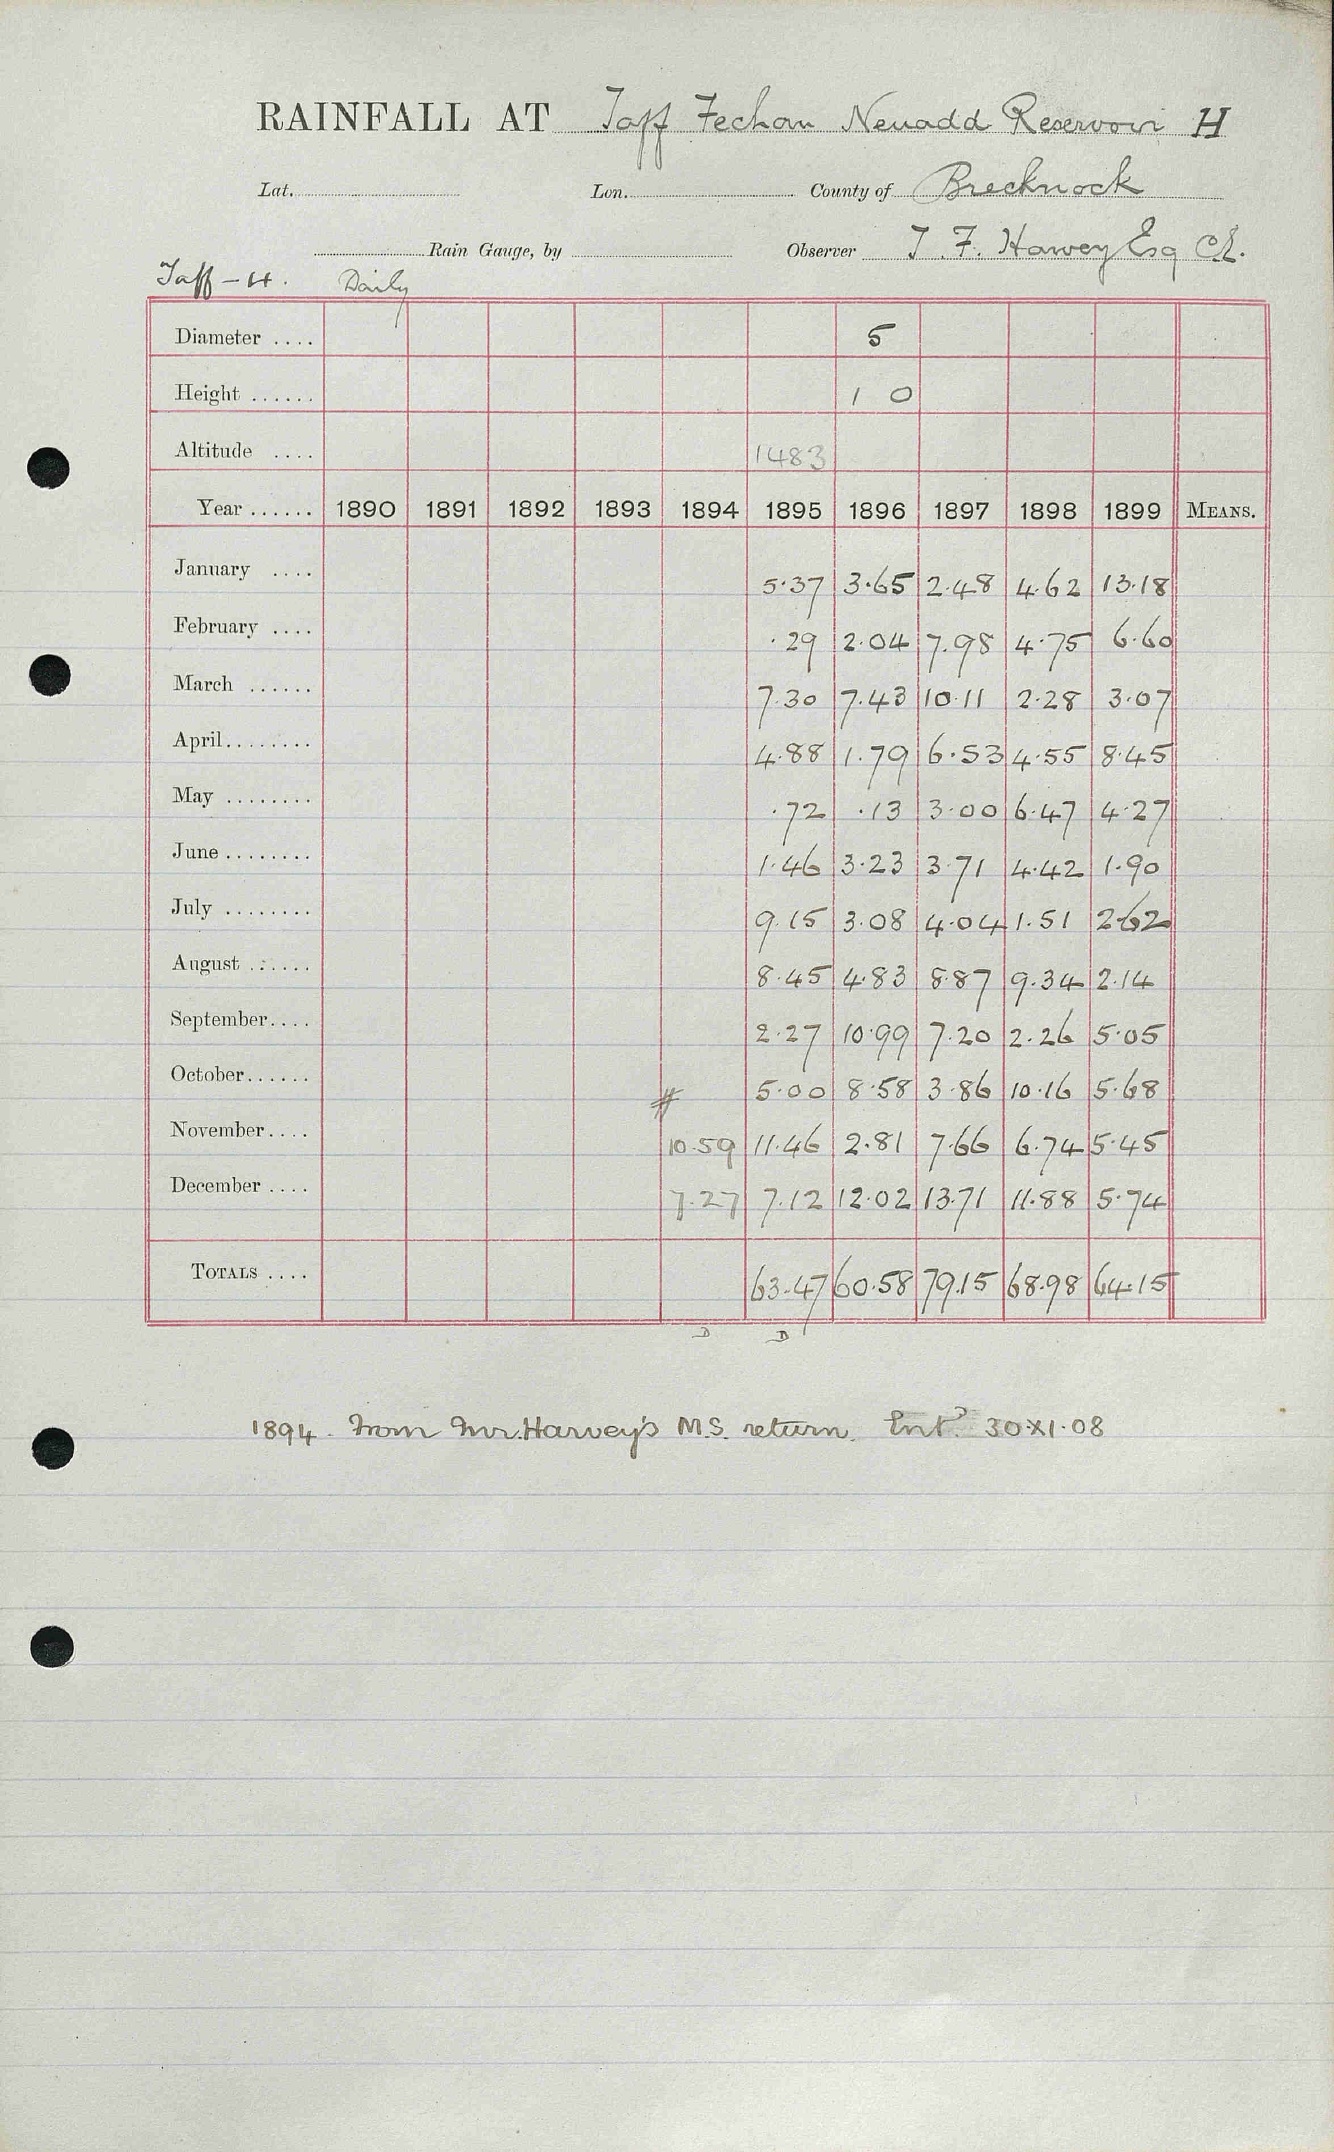 RAINFALL AT Taff Fechan Neuadd Reservoir H
Lat. Lon. County of Brecknock
Rain Gauge, by Observer T. F. Harvey Esq C.E.
Taff – H. Daily
Diameter .... 5
Height ...... 1 0
Altitude .... 1483
Year ...... 1890 1891 1892 1893 1894 1895 1896 1897 1898 1899 MEANS.
January .... 5.37 3.65 2.48 4.62 13.18
February .... .29 2.04 7.98 4.75 6.60
March ...... 7.30 7.43 10.11 2.28 3.07
April........ 4.88 1.79 6.53 4.55 8.45
May ........ .72 .13 3.00 6.47 4.27
June ........ 1.46 3.23 3.71 4.42 1.90
July ........ 9.15 3.08 4.04 1.51 2.62
August ...... 8.45 4.83 8.87 9.34 2.14
September.... 2.27 10.99 7.20 2.26 5.05
October...... # 5.00 8.58 3.86 10.16 5.68
November.... 10.59 11.46 2.81 7.66 6.74 5.45
December .... 7.27 7.12 12.02 13.71 11.88 5.74
TOTALS .... 63.47 60.58 79.15 68.98 64.15
D D
1894. From Mr. Harvey's M.S. return. Entd 30.XI.08